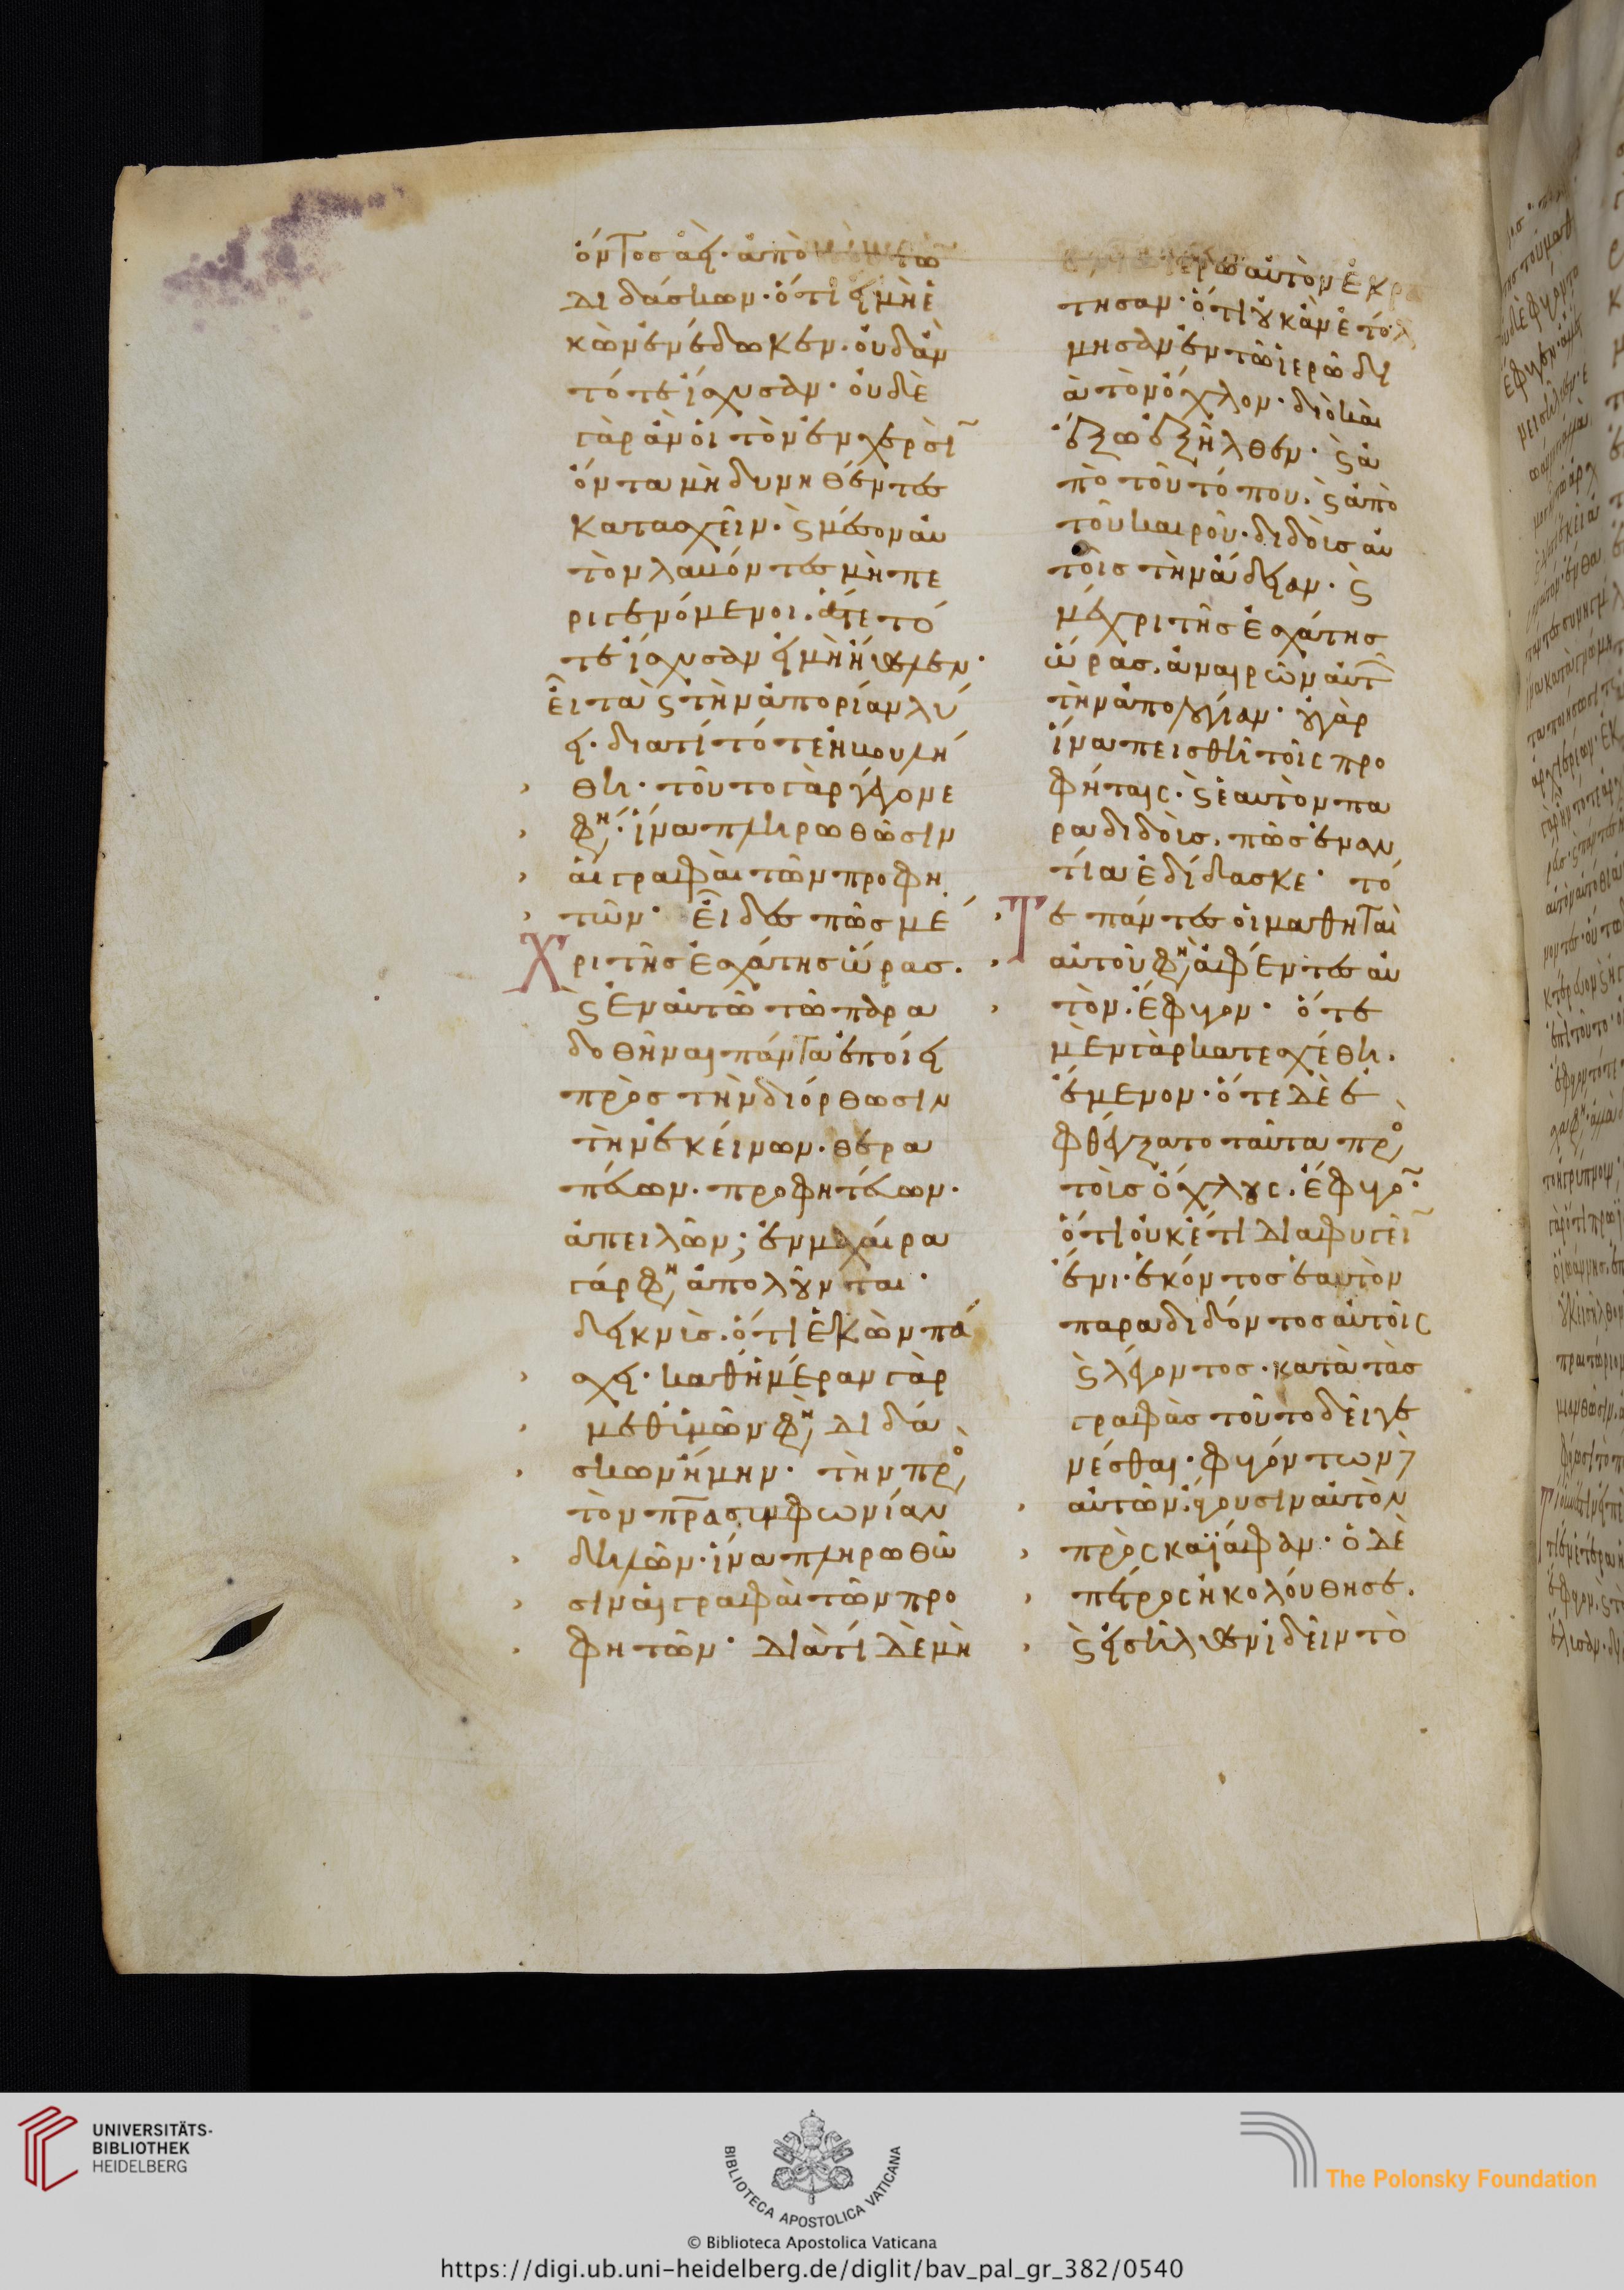 όντος ἀεί· ἀπὸ τῶ
διδάσκων· ὅτι εἰ μὴ ἑ
κὼν ἐνέδωκεν· οὐδ' ἂν
τότε ἴσχυσαν· οὐδὲ
γὰρ ἂν οἱ τὸν ἐν χερσὶ̅
όντα μὴ δυνηθέντες
κατασχεῖν· ϛ μέσον αὐ
τὸν λαβόντες μὴ πε
ριγενόμενοι. οὔτε τό
τε ἴσχυσαν εἰ μὴ ἤθελεν·
Εἶτα ϛ τὴν ἀπορίαν λύ
ει· διατί τότε ἠβουλή
θη· τοῦτο γὰρ γέγονέ
φη· ἵνα πληρωθῶσιν
αἱ γραφαὶ τῶν προφη
τῶν· Εἶδες πῶς μέ
Χρι τῆς ἐσχάτης ὥρας.
ϛ ἐν αὐτῶ τῶ παρα
δοθῆναι πάντα ἐποίει
πρὸς τὴν διόρθωσιν
τὴν ἐκείνων. θερα
πεύων. προφητεύων.
ἀπειλῶν; ἐν μαχαίρα
γάρ φη ἀπολοῦνται·
δεικνὺς. ὅτι ἑκὼν πά
σχει· καθημέραν γὰρ
μεθ' ὑμῶν φη διδά
σκων ἤμην· τὴν πρὸ
τὸν πρ̅α συμφωνίαν
δηλῶν· ἵνα πληρωθῶ
σιν αἱ γραφαὶ τῶν προ
φητῶν· διὰ τί δὲ μὴ
ἱερῶ αὐτὸν ἐκρ
τησαν· ὅτι οὐκ ἂν ἐτόλ
μησαν ἐν τῶ ἱερῶ δι
ὰ τὸν ὄχλον· διὸ καὶ
ἔξω ἐξῆλθεν· ϛ ἀ
πὸ τοῦ τόπου. ϛ ἀπὸ
τοῦ καιροῦ. διδοὺς αὐ
τοῖς τὴν ἄδειαν· ϛ
μέχρι τῆς ἐσχάτης
ὥρας. ἀναιρῶν αὐτ
τὴν ἀπολογίαν· ὁ γὰρ
ἵνα πεισθῆ τοῖς προ
φήταις· ϛ ἑαυτὸν πα
ραδιδοὺς. πῶς ἐναν
τία ἐδίδασκε· τό
Τε πάντες οἱ μαθηταὶ
αὐτοῦ φη ἀφέντες αὐ
τὸν. ἔφυγον· ὅτε
μὲν γὰρ κατεσχέθη.
ἔμενον· ὅτε δὲ ἐ
φθέγξατο ταῦτα πρὸ
τοὺς ὄχλους. ἔφυγο̅·
ὅτι οὐκέτι διαφυγεῖ̅
ἔνι· ἑκόντος ἑαυτὸν
παραδιδόντος αὐτοῖς
ϛ λέγοντος. κατὰ τὰς
γραφὰς τοῦτο δεῖ γε
νέσθαι· φυγόντων
αὐτῶν. ἄγουσιν αὐτὸν
πρὸς καϊάφαν· ὁ δὲ
πέτρος ἠκολούθησε.
ϛ εἰσῆλθεν ἰδεῖν τὸ
UNIVERSITÄTS-
BIBLIOTHEK
HEIDELBERG
BIBLIOTECA APOSTOLICA VATICANA
© Biblioteca Apostolica Vaticana
The Polonsky Foundation
https://digi.ub.uni-heidelberg.de/diglit/bav_pal_gr_382/0540